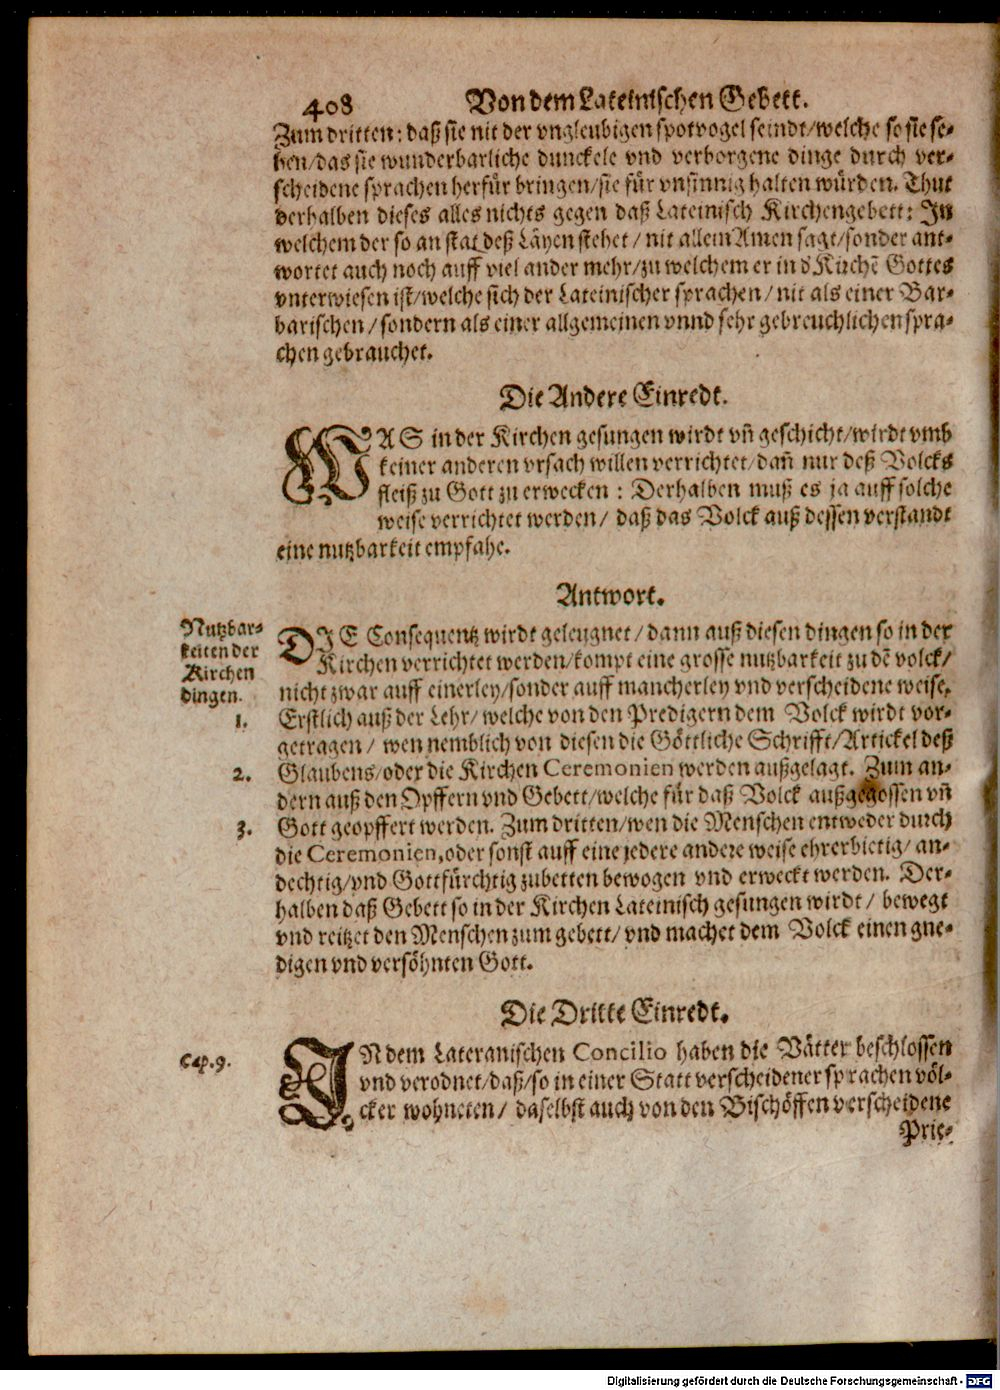 408 Von dem Lateinischen Gebett.
Zum dritten: daß sie nit der vngleubigen spotvogel seindt/welche so sie se-
hen/das sie wunderbarliche dunckele vnd verborgene dinge durch ver-
scheidene sprachen herfür bringen/sie für vnsinnig halten würden. Thut
derhalben dieses alles nichts gegen daß Lateinisch Kirchengebett: In
welchem der so an stat deß Läyen stehet / nit allein Amen sagt/sonder ant-
wortet auch noch auff viel ander mehr/zu welchem er in d' Kirchẽ Gottes
vnterwiesen ist/welche sich der Lateinischer sprachen / nit als einer Bar-
barischen /sondern als einer allgemeinen vnnd sehr gebreuchlichen spra-
chen gebrauchet.
Die Andere Einredt.
WAS in der Kirchen gesungen wirdt vñ geschicht/wirdt vmb
keiner anderen vrsach willen verrichtet/dañ nur deß Volcks
fleiß zu Gott zu erwecken : Derhalben muß es ja auff solche
weise verrichtet werden/ daß das Volck auß dessen verstandt
eine nutzbarkeit empfahe.
Antwort.
Nutzbar-
keiten der
Kirchen
dingen.
DIE Consequentz wirdt geleugnet / dann auß diesen dingen so in der
Kirchen verrichtet werden/kompt eine grosse nutzbarkeit zu dẽ volck/
nicht zwar auff einerley/sonder auff mancherley vnd verscheidene weise.
1. Erstlich auß der Lehr/ welche von den Predigern dem Volck wirdt vor-
getragen / wen nemblich von diesen die Göttliche Schrifft/Artickel deß
2. Glaubens/oder die Kirchen Ceremonien werden außgelagt. Zum an-
dern auß den Opffern vnd Gebett/welche für daß Volck außgegossen vñ
3. Gott geopffert werden. Zum dritten/wen die Menschen entweder durch
die Ceremonien, oder sonst auff eine jedere andere weise ehrerbietig/ an-
dechtig/vnd Gottfürchtig zubetten bewogen vnd erweckt werden. Der-
halben daß Gebett so in der Kirchen Lateinisch gesungen wirdt / bewegt
vnd reitzet den Menschen zum gebett/ vnd machet dem Volck einen gne-
digen vnd versöhnten Gott.
Die Dritte Einredt.
Cap. 9.
IN dem Lateranischen Concilio haben die Vätter beschlossen
vnd verodnet/daß/so in einer Statt verscheidener sprachen völ-
cker wohneten / daselbst auch von den Bischöffen verscheidene
Prie-
Digitalisierung gefördert durch die Deutsche Forschungsgemeinschaft - DFG